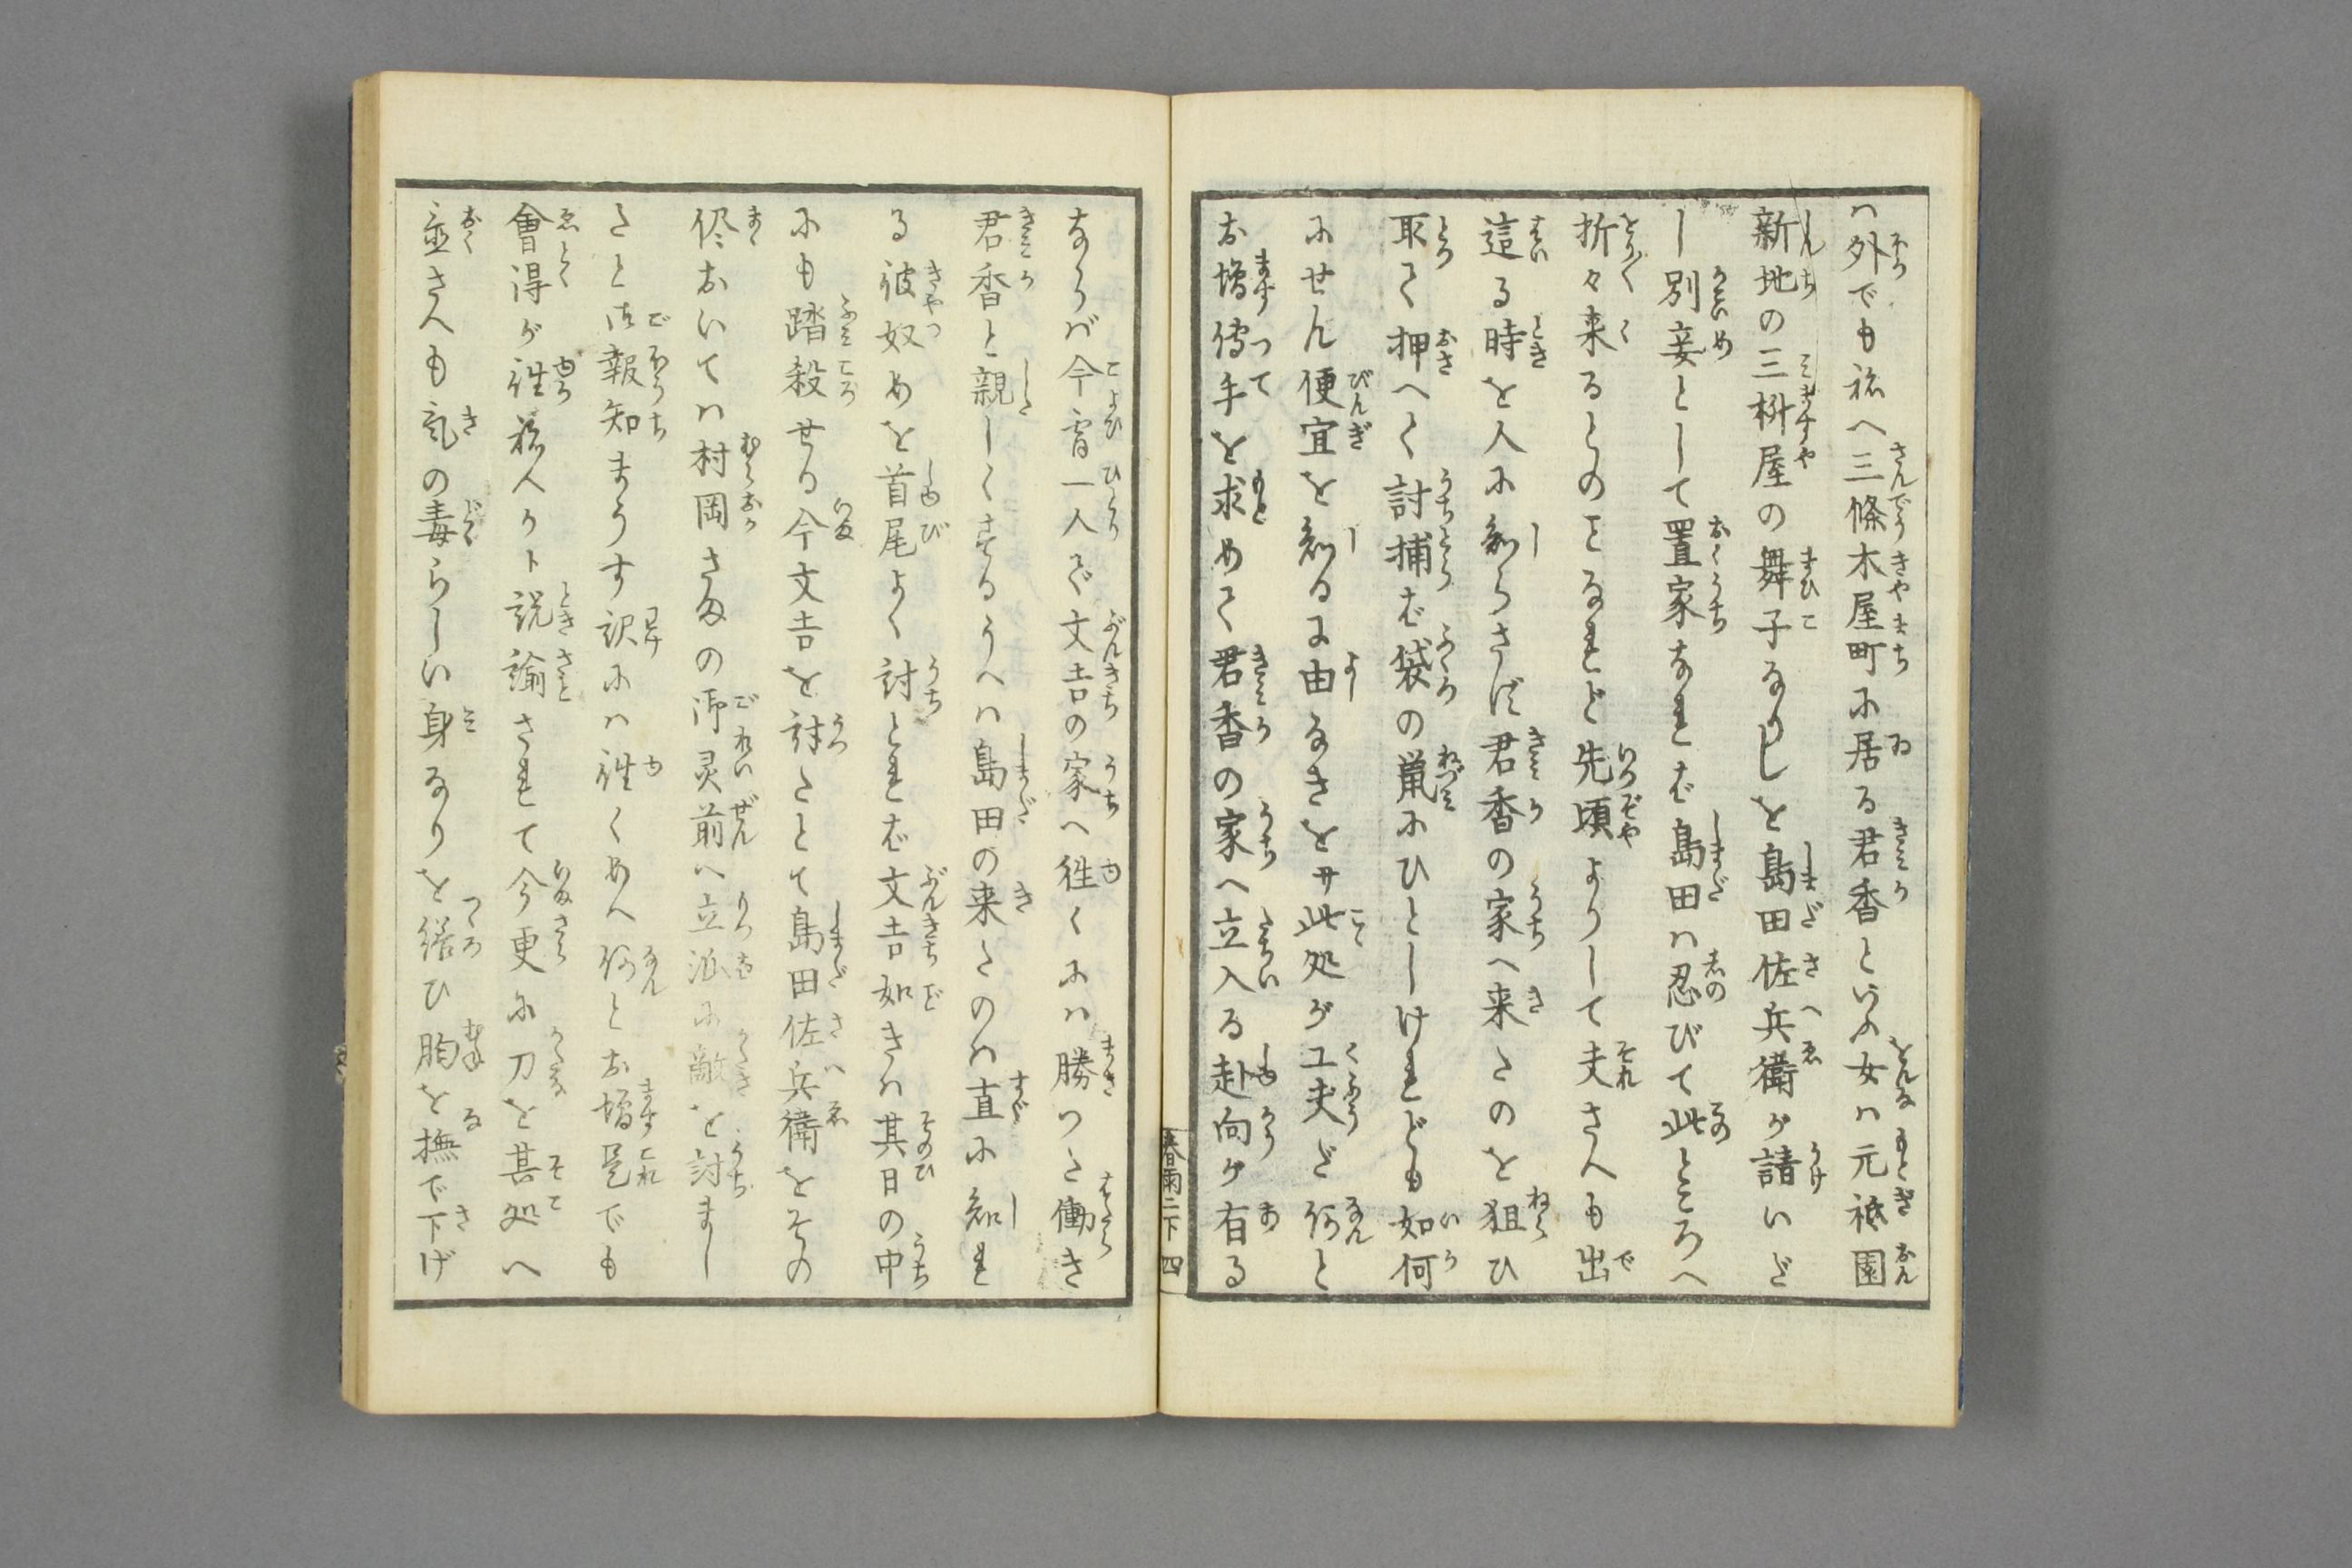 ハ外でも旅へ三條木屋町に居る君香といふ女ハ元祇園
新地の三枡屋の舞子なりしを島田佐兵衛が請いだ
し別妾として置家なれば島田ハ忍びて此ところへ
折々来るとのことなれど先頃よりして夫さへも出
這る時を人に知らさず君香の家へ来たのを狙ひ
取て押へて討捕ば袋の鼠にひとしけれども如何
にせん便宜を知るに由なきをサ此処が工夫だ何と
お増傳手を求めて君香の家へ立入る赴向が有る
春雨二下 四
ならば今宵一人で文吉の家へ徃くにハ勝つた働き
君香と親しくするうへハ島田の来たのハ直に知れ
る彼奴めを首尾よく討とれば文吉如きハ其日の中
にも踏殺せる今文吉を討たとて島田佐兵衛をその
侭おいてハ村岡さまの御灵前へ立派に敵を討まし
たと御報知まうす訳にハ徃くめへ何とお増是でも
會得が徃ねへかト説諭されて今更に刀を其処へ
並さへも気の毒らしい身なりを繕ひ胸を撫で下げ